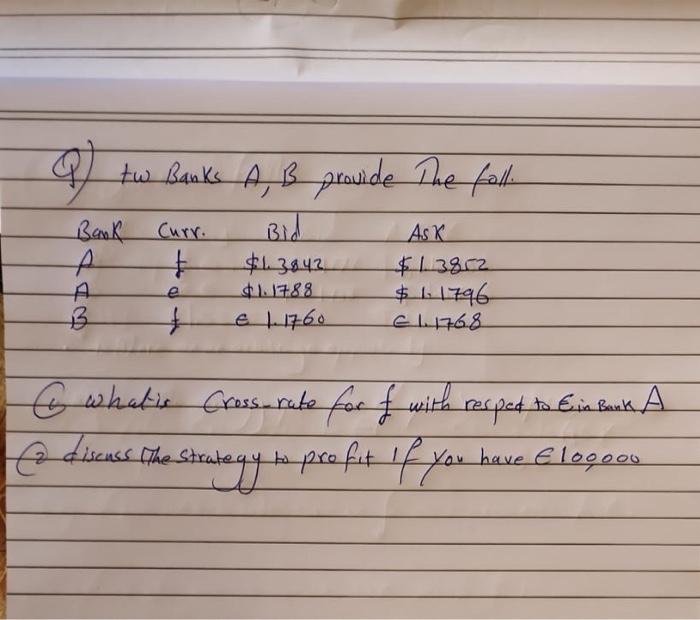 Q) tw Banks A, B provide The foll.
Bank Curr. Bid Ask
A £ $1.3842 $1.3852
A € $1.1788 $1.1796
B £ € 1.1760 € 1.1768
① what is Cross-rate for £ with respect to € in Bank A
② discuss The strategy to profit If you have €100,000